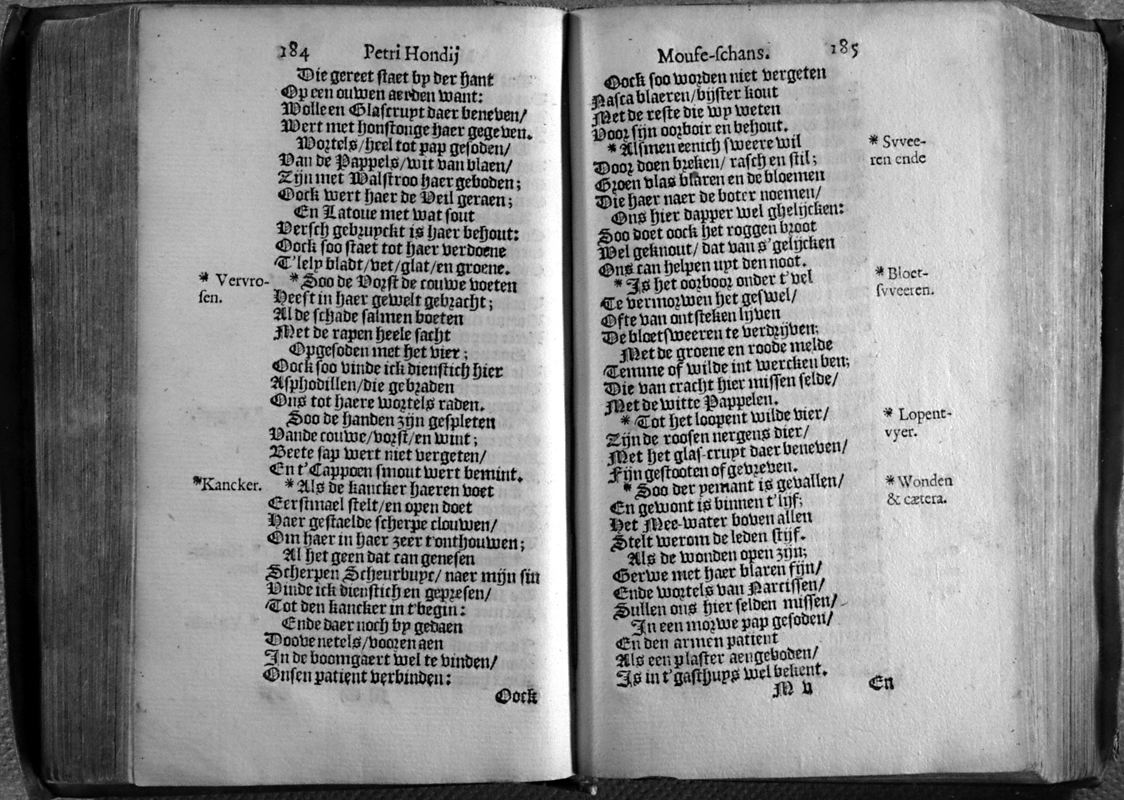 184 Petri Hondij
Die gereet staet by der hant
Op een ouwen aerden want:
Wolle en Glascruyt daer beneven/
Wert met honstonge haer gegeven.
Wortels/heel tot pap gesoden/
Van de Pappels/wit van blaen/
Zijn met Walstroo haer geboden;
Oock wert haer de Veil geraen;
En Latoue met wat sout
Versch gebruyckt is haer behout:
Oock soo staet tot haer verdoene
T'lely bladt/vet/glat/en groene.
* Vervro-
sen.
* Soo de Vorst de couwe voeten
Heeft in haer gewelt gebracht;
Al de schade salmen boeten
Met de rapen heele sacht
Opgesoden met het vier;
Oock soo vinde ick dienstich hier
Asphodillen/die gebraden
Ons tot haere wortels raden.
Soo de handen zijn gespleten
Vande couwe/vorst/en wint;
Beete sap wert niet vergeten/
En t'Cappoen smout wert bemint.
*Kancker.
* Als de kancker haeren voet
Eerstmael stelt/en open doet
Haer gestaelde scherpe clouwen/
Om haer in haer zeer t'onthouwen;
Al het geen dat can genesen
Scherpen Scheurbuyc/ naer mijn sin
Vinde ick dienstich en gepresen/
Tot den kancker in t'begin:
Ende daer noch by gedaen
Doove netels/vooren aen
In de boomgaert wel te vinden/
Onsen patient verbinden:
Oock
Mouse-schans. 185
Oock soo worden niet vergeten
Nasca blaeren/bijster kout
Met de reste die wy weten
Voor sijn oorboir en behout.
* Svvee-
ren ende
* Alsmen eenich sweere wil
Door doen breken/ rasch en stil;
Groen vlas blaren en de bloemen
Die haer naer de boter noemen/
Ons hier dapper wel ghelijcken:
Soo doet oock het roggen broot
Wel geknout/ dat van s'gelijcken
Ons can helpen uyt den noot.
* Bloet-
svveeren.
* Is het oorboor onder t'vel
Te vermorwen het geswel/
Ofte van ontsteken lijven
De bloetsweeren te verdrijven;
Met de groene en roode melde
Temme of wilde int wercken ben;
Die van cracht hier missen selde/
Met de witte Pappelen.
* Lopent-
vyer.
* Tot het loopent wilde vier/
Zijn de roosen nergens dier/
Met het glas-cruyt daer beneven/
Fijn gestooten of gevreven.
* Wonden
& cætera.
* Soo der yemant is gevallen/
En gewont is binnen t'lijf;
Het Mee-water boven allen
Stelt werom de leden stijf.
Als de wonden open zijn;
Gerwe met haer blaren fijn/
Ende wortels van Narcissen/
Sullen ons hier selden missen/
In een morwe pap gesoden/
En den armen patient
Als een plaster aengeboden/
Is in t'gasthuys wel bekent.
M v En